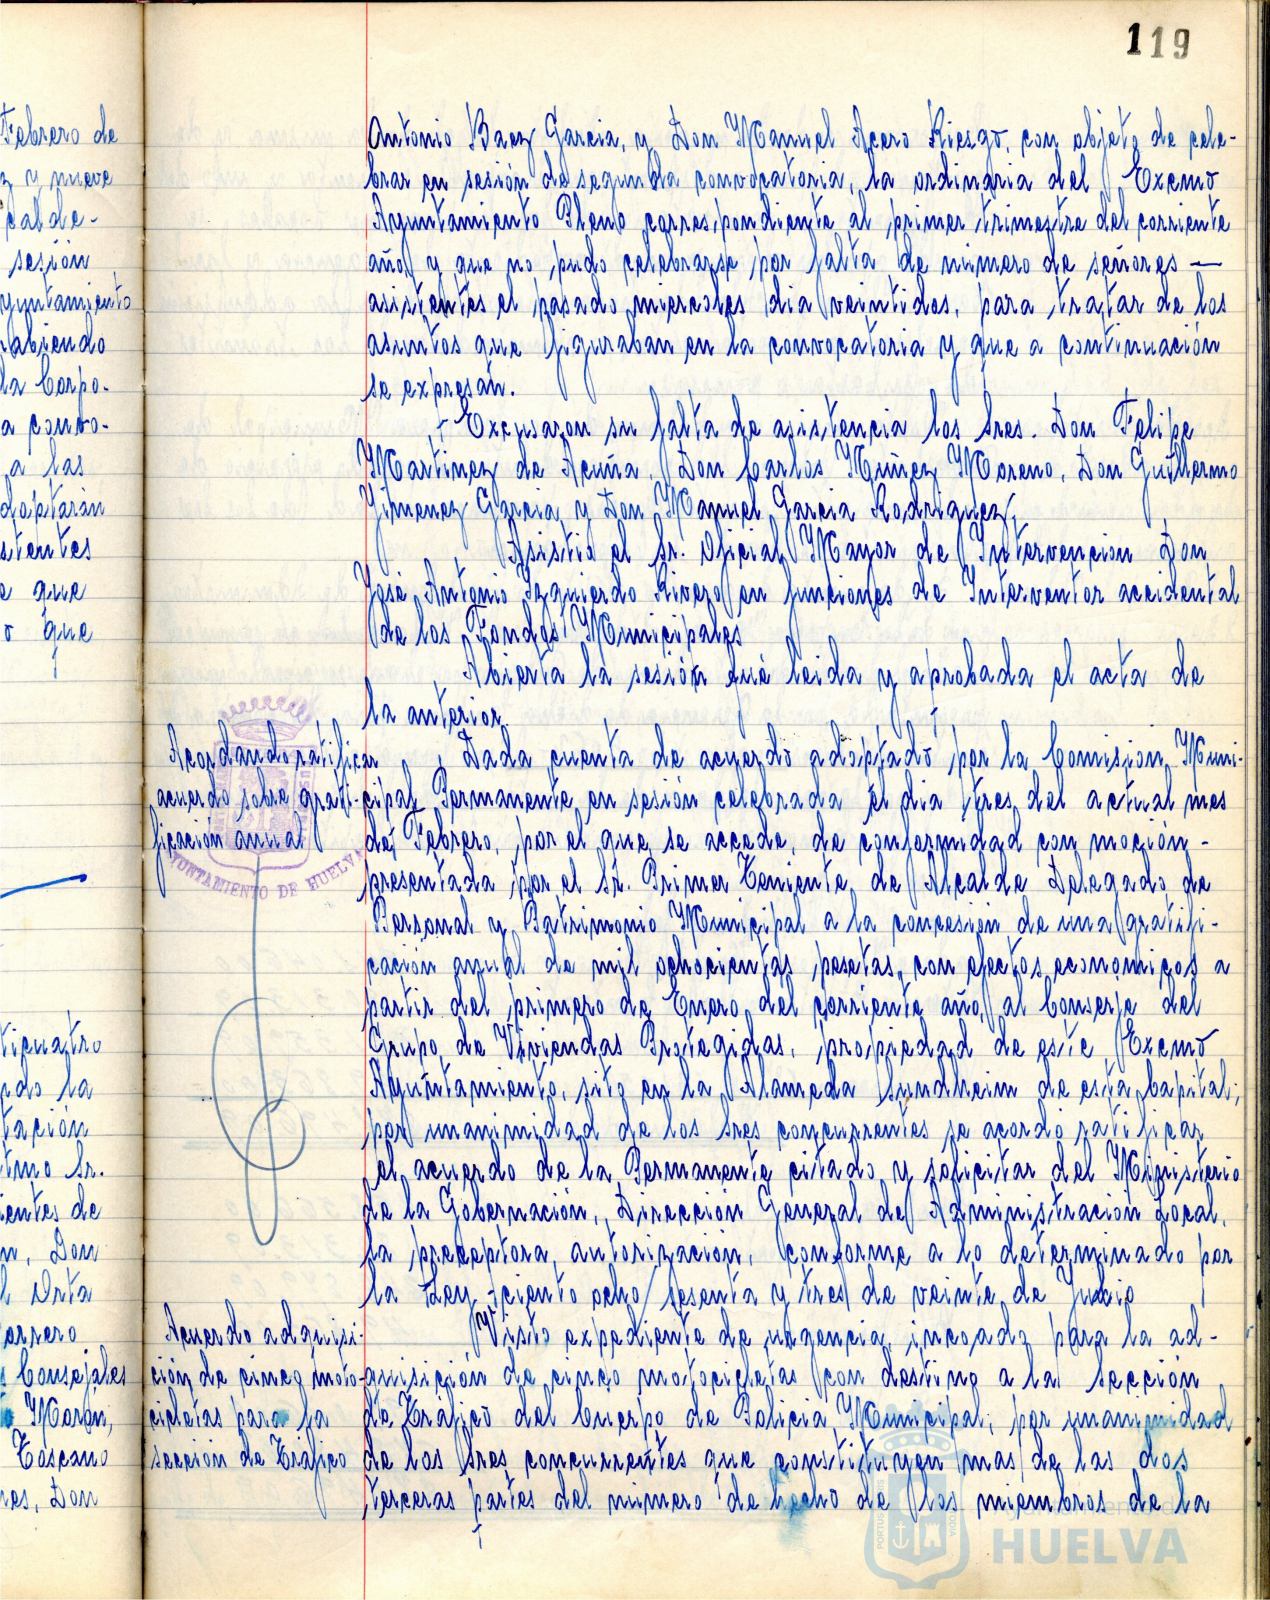 119
Febrero de
z y nueve
calde-
sesión
yuntamiento
abiendo
la Corpo-
a convo-
a las
doptarán
stentes
e que
o que
ticuatro
ndo la
tación
tmo Sr.
ientes de
n, Don
l Orta
orrero
s Consejales
Morón,
Toscano
nes, Don
Antonio Baez Garcia, y Don Manuel Acero Riesgo, con objeto de cele-
brar en sesión de segunda convocatoria, la ordinaria del Excmo
Ayuntamiento Pleno correspondiente al primer trimestre del corriente
año y que no pudo celebrarse por falta de número de señores —
asistentes el pasado miercoles dia veintidos, para tratar de los
asuntos que figuraban en la convocatoria y que a continuación
se expresan.
Excusaron su falta de asistencia los Sres. Don Felipe
Martinez de Acuña, Don Carlos Muñez Moreno, Don Guillermo
Jimenez Garcia y Don Manuel Garcia Rodriguez,
Asistió el Sr. Oficial Mayor de Intervencion Don
José Antonio Izquierdo Rivero en funciones de Interventor accidental
de los Fondos Municipales
Abierta la sesión qué leida y aprobada el acta de
la anterior.
Acordando ratificar
acuerdo sobre grati-
ficación anual
AYUNTAMIENTO DE HUELVA
Dada cuenta de acuerdo adoptado por la Comision Muni-
cipal Permanente en sesión celebrada el dia tres del actual mes
de Febrero, por el que se accede, de conformidad con moción -
presentada por el Sr. Primer Teniente de Alcalde Delegado de
Personal y Patrimonio Municipal a la concesión de una gratifi-
cación anual de mil ochocientas pesetas, con efectos economicos a
partir del primero de Enero del corriente año, al Conserje del
Grupo de Viviendas Protegidas, propiedad de este Excmo
Ayuntamiento, sito en la Alameda Sundheim de esta Capital;
por unanimidad de los Sres concurrentes se acordó ratificar
el acuerdo de la Permanente citado y solicitar del Ministerio
de la Gobernación, Dirección General de Administración Local,
la preceptora autorización, conforme a lo determinado por
la Ley ciento ocho/sesenta y tres de veinte de Julio
Acuerdo adquisi-
ción de cinco moto-
cicletas para la
sección de Tráfico
Visto expediente de urgencia incoado para la ad-
quisición de cinco motocicletas con destino a la Sección
de Tráfico del Cuerpo de Policia Municipal; por unanimidad
de los Sres concurrentes que constituyen mas de las dos
terceras partes del número de hecho de los miembros de la
Ayuntamiento de
HUELVA